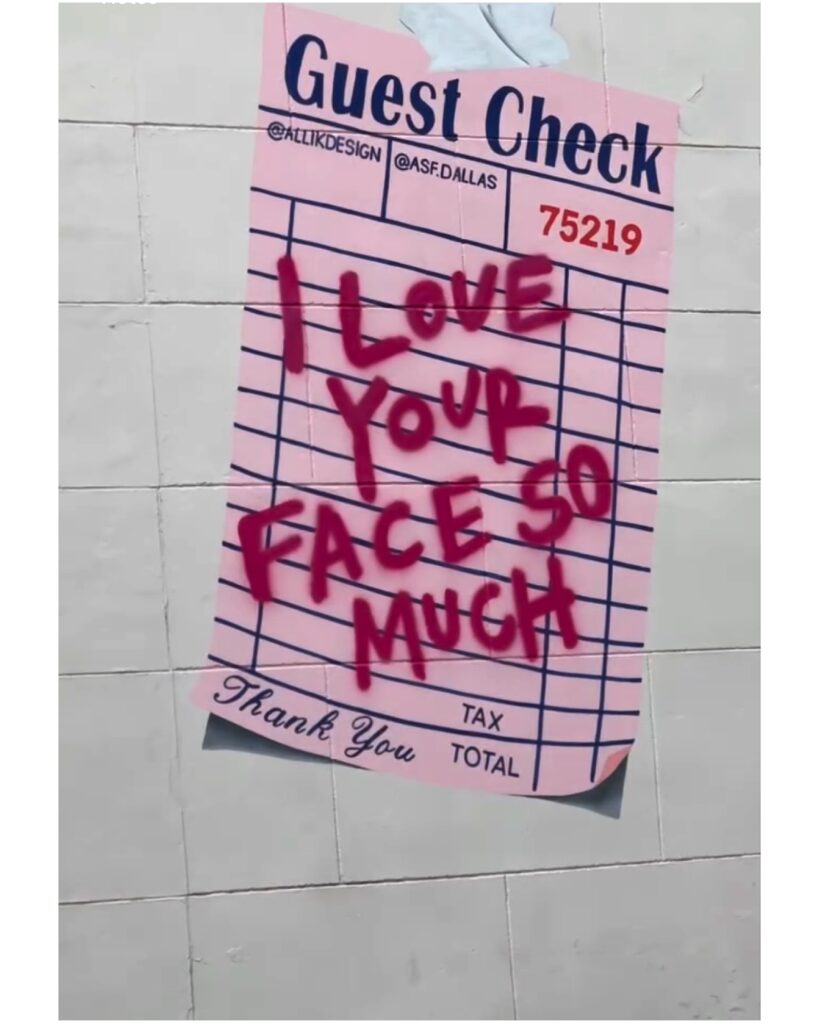 Guest Check
@ALLIKDESIGN @ASF.DALLAS 75219
I LOVE
YOUR
FACE SO
MUCH
TAX
Thank You TOTAL